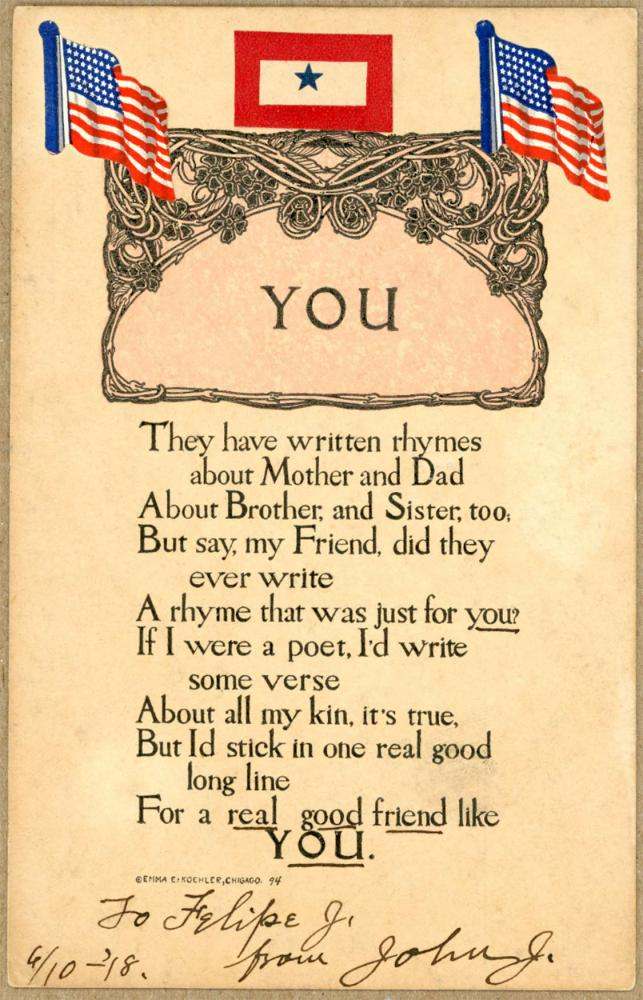 YOU
They have written rhymes
about Mother and Dad
About Brother, and Sister, too;
But say, my Friend, did they
ever write
A rhyme that was just for you?
If I were a poet, I'd write
some verse
About all my kin, it's true,
But Id stick in one real good
long line
For a real good friend like
YOU.
©EMMA C. KOEHLER, CHICAGO. 94
To Felipe J.
from John J.
6/10-'18.